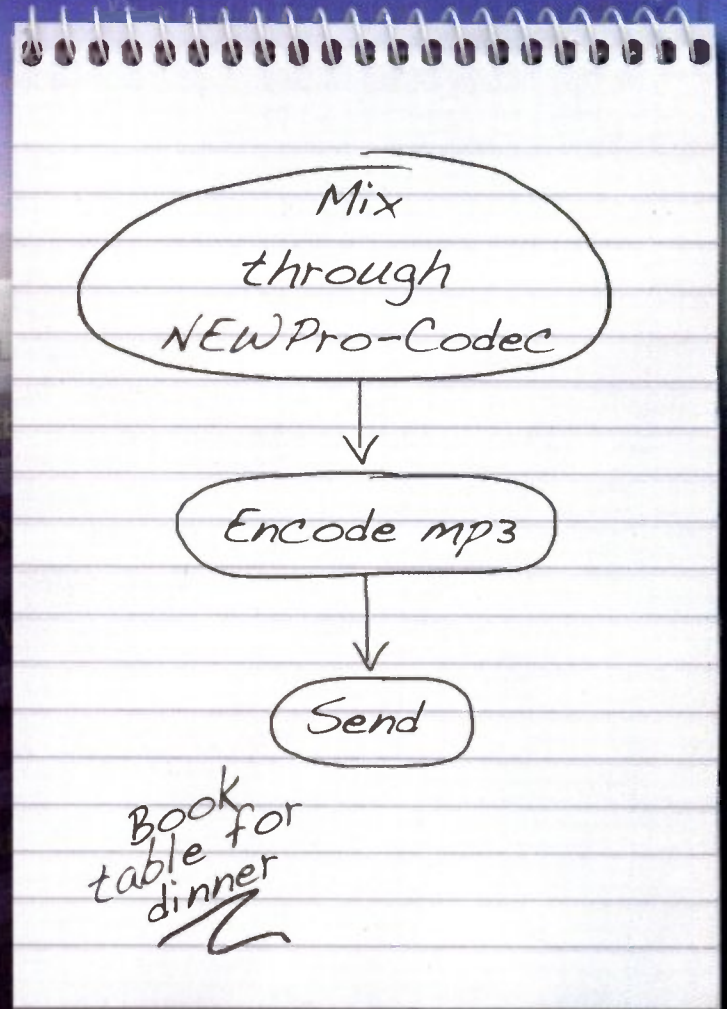 Mix
through
NEW Pro-Codec
Encode mp3
Send
Book
table for
dinner